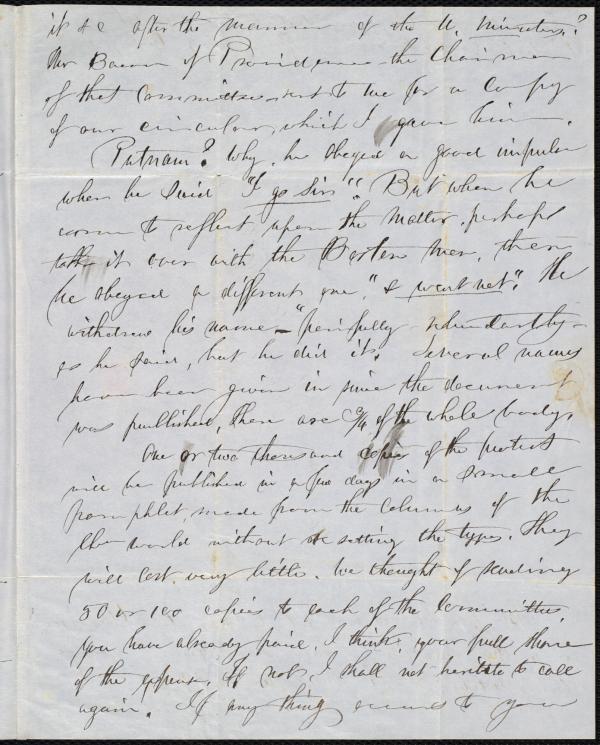 it &c after the manner of the U. ministers?
Mr Bacon of Providence the Chairman
of that Committee sent to me for a Copy
of our circular, which I gave him.
Putnam? Why, he obeyed a good impulse
when he said "I go Sir"! But when he
came to reflect upon the matter, perhaps
talk it over with the Boston men, then
he obeyed a different one, "& went not." He
withdrew his name — "painfully reluctantly"
as he said, but he did it. Several names
have been given in since the document
was published, there are 3/4 of the whole body.
One or two thousand copies of the protest
will be published in a few days in a small
pamphlet, made from the columns of the
Ch. world without setting the types. They
will cost very little. We thought of sending
50 or 100 copies to each of the Committee.
You have already paid, I think, your full share
of the expense. If not, I shall not hesitate to call
again. If any thing occurs to you